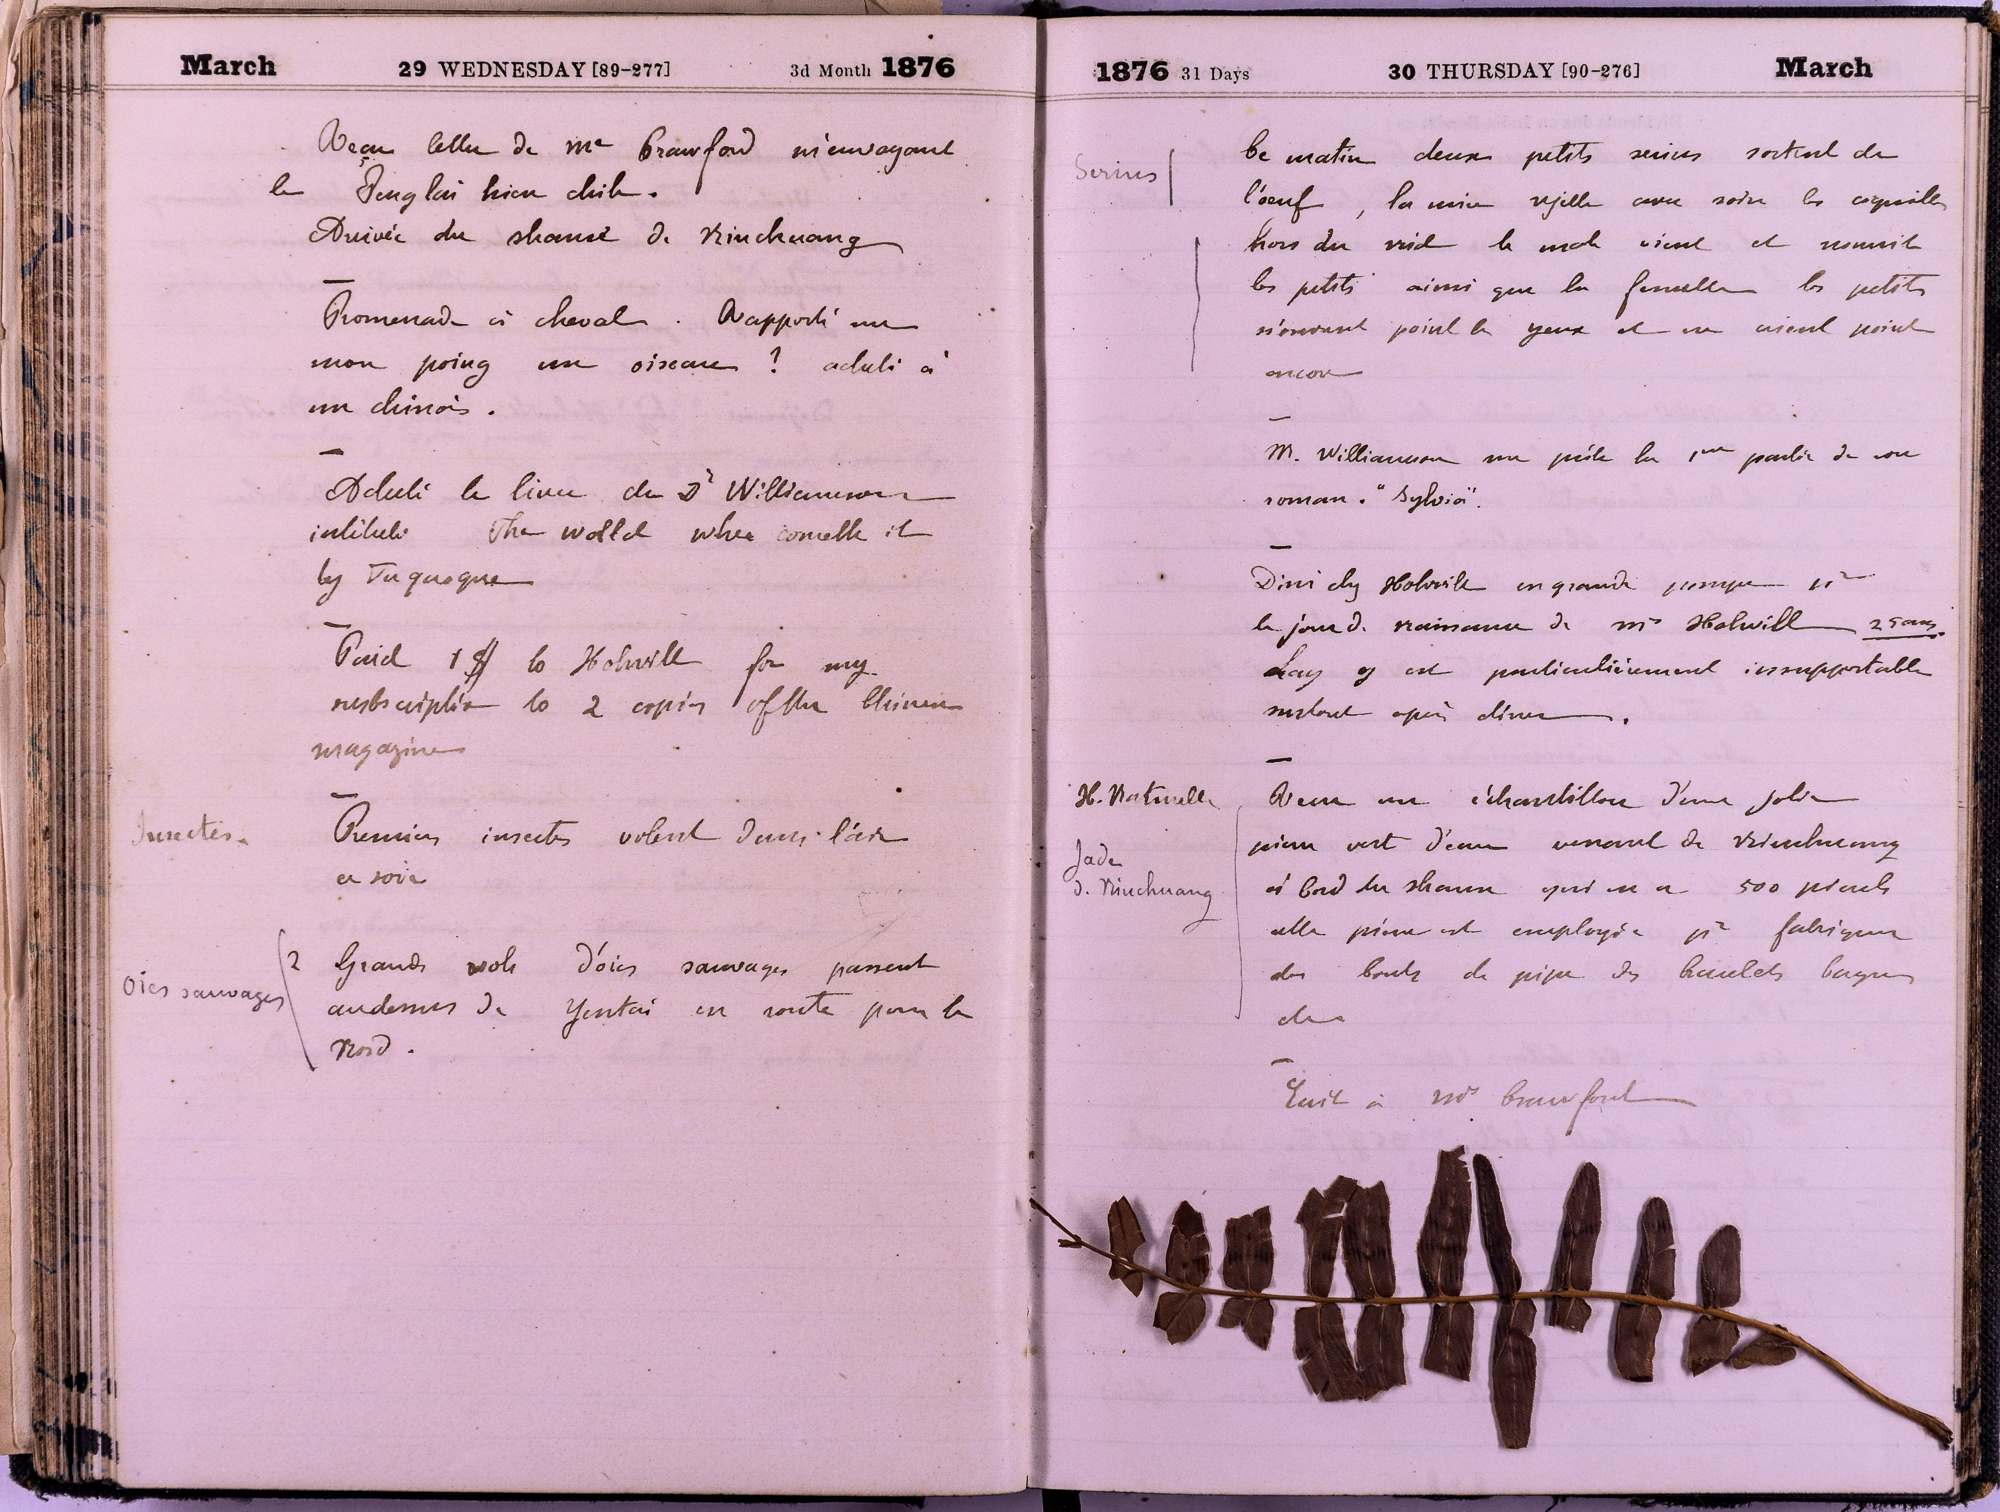 March 29 WEDNESDAY [89-277] 3d Month 1876
Reçu lettre de Me Crawford m'envoyant
le Penglai hien chih.
Arrivée du shansé de Niuchuang
Promenade à cheval. Rapporté sur
mon poing un oiseau ? acheté à
un chinois.
Acheté le livre du Dr Williamson
intitulé The world whence cometh it
by Tuquoque
Paid 1 $ to Holwill for my
subscription to 2 copies of the Chinese
magazine
Insectes.
Premiers insectes volent dans l'air
ce soir
Oies sauvages
2 Grands vols d'oies sauvages passent
audessus de Yentai en route pour le
Nord.
1876 31 Days 30 THURSDAY [90-276] March
Serins
Ce matin deux petits serins sortent de
l'oeuf, la mère rejette avec soin les coquilles
hors du nid le male vient et nourrit
les petits ainsi que la femelle les petits
n'ouvrent point les yeux et ne crient point
encore
M. Williamson me prête la 1ère partie de son
roman. "Sylvia".
Diné chez Holwill en grande pompe pr
le jour de naissance de Mrs Holwill 25 ans.
y est particulièrement insupportable
surtout après diner.
H. Naturelle
Jade
d. Niuchuang
Reçu un échantillon d'une jolie
pierre vert d'eau venant de Niuchuang
à bord du shansé qui en a 500 piculs
cette pierre est employée pr fabriquer
des bouts de pipe des bracelets bagues
etc
Ecrit à Mrs Crawford